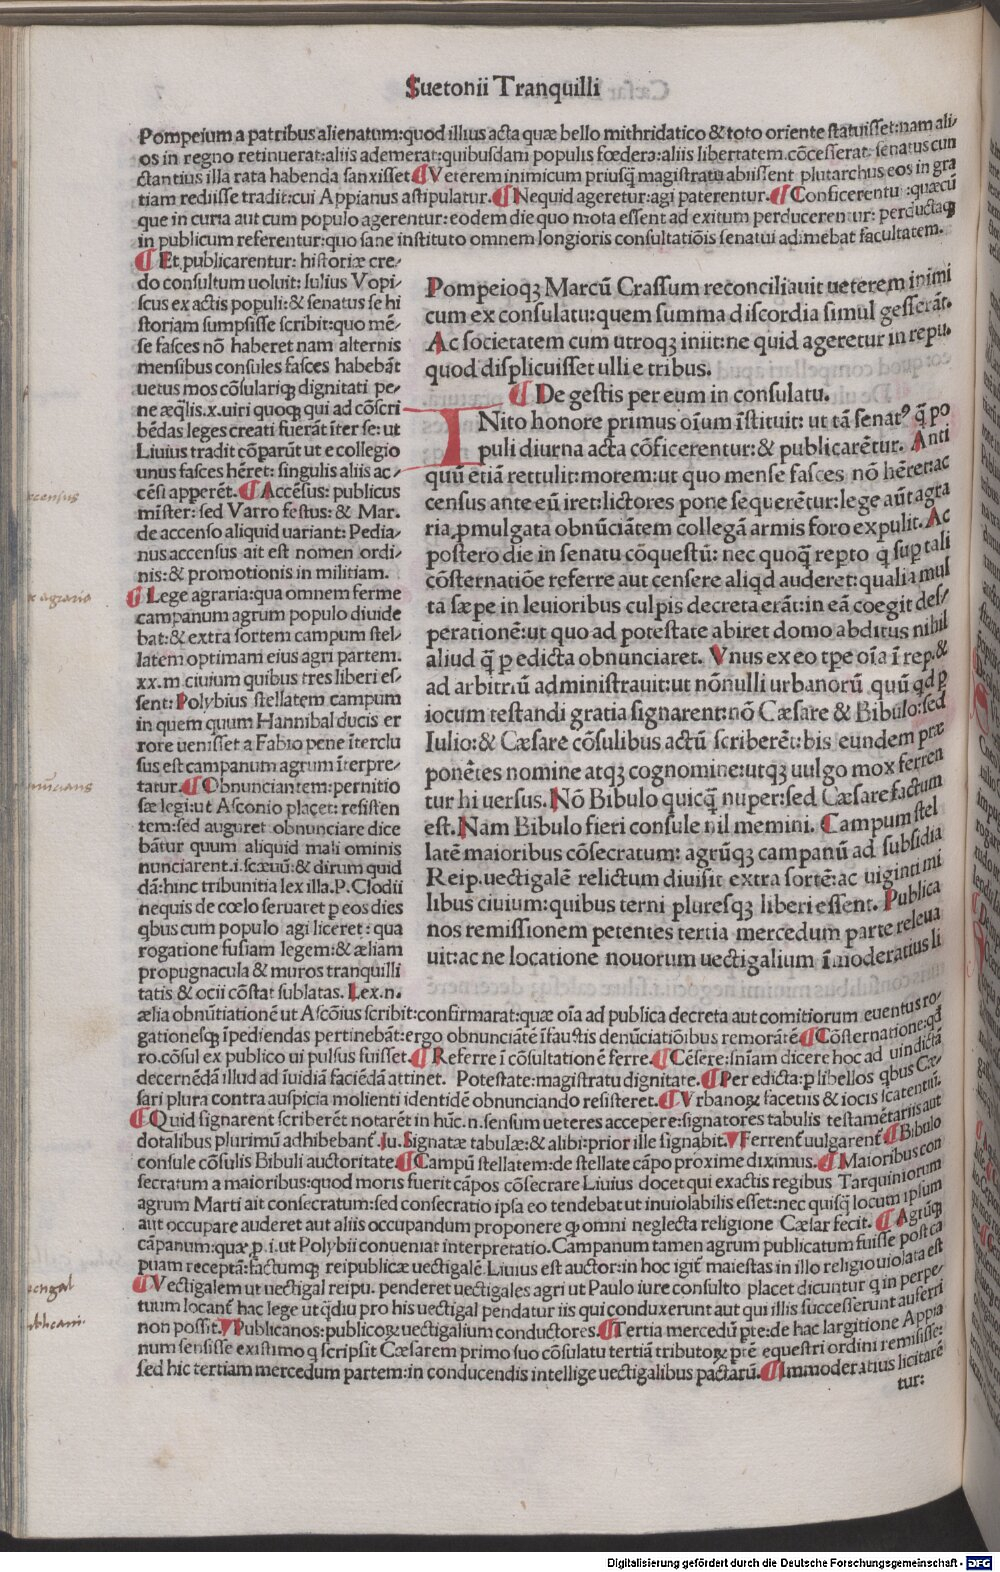 Suetonii Tranquilli
Pompeium a patribus alienatum:quod illius acta quæ bello mithridatico & toto oriente statuisset:nam ali/
os in regno retinuerat:aliis ademerat:quibusdam populis fœdera:aliis libertatem cōcesserat. senatus cun
ctantius illa rata habenda sanxisset ¶ Veterem inimicum priusq̄ magistratu abiissent plutarchus eos in gra
tiam rediisse tradit:cui Appianus astipulatur. ¶ Nequid ageretur:agi paterentur. ¶ Conficerentu :quæcū
que in curia aut cum populo agerentur:eodem die quo mota essent ad exitum perducerentur: perductaqȝ
in publicum referentur:quo sane instituto omnem longioris consultatiōis senatui adimebat facultatem.
¶ Et publicarentur: historiæ cre/
do consultum uoluit: Iulius Vopi/
scus ex actis populi:& senatus se hi
storiam sumpsisse scribit:quo mē/
se fasces nō haberet nam alternis
mensibus consules fasces habebāt
uetus mos cōsulariqȝ dignitati pe/
ne æq̄lis.x.uiri quoqȝ qui ad cōscri
bēdas leges creati fuerāt īter se: ut
Liuius tradit cōparūt ut e collegio
unus fasces hēret: singulis aliis ac/
cēsi apperēt. ¶ Accēsus: publicus
mīster: sed Varro festus: & Mar.
de accenso aliquid uariant: Pedia/
nus accensus ait est nomen ordi/
nis:& promotionis in militiam.
¶ Lege agraria:qua omnem ferme
campanum agrum populo diuide
bat:& extra sortem campum stel/
latem optimam eius agri partem.
xx.m ciuium quibus tres liberi es/
sent: Polybius stellatem campum
in quem quum Hannibal ducis er
rore uenisset a Fabio pene īterclu
sus est campanum agrum īterpre/
tatur. ¶ Obnunciantem:pernitio
sæ legi:ut Asconio placet: resisten
tem:sed augures obnunciare dice
bātur quum aliquid mali ominis
nunciarent.i.scæuū:& dirum quid
dā:hinc tribunitia lex illa.P. Clodii
nequis de cœlo seruaret p eos dies
qbus cum populo agi liceret: qua
rogatione fusiam legem:& æliam
propugnacula & muros tranquilli
tatis & ocii cōstat sublatas. Lex.n.
Pompeioqȝ Marcū Crassum reconciliauit ueterem inimi
cum ex consulatu:quem summa discordia simul gesserāt.
Ac societatem cum utroqȝ iniit:ne quid ageretur in repu.
quod displicuisset ulli e tribus.
¶ De gestis per eum in consulatu.
INito honore primus oīum īstituit: ut tā senatꝰ q̄ po
puli diurna acta cōficerentur:& publicarētur. Anti
quū etiā rettulit:morem:ut quo mense fasces nō hēret:ac
census ante eū iret:lictores pone sequerētur:lege aūt agra
ria ꝓmulgata obnūciātem collegā armis foro expulit. Ac
postero die in senatu cōquestū: nec quoq̄ repto q sup tali
cōsternatiōe referre aut censere aliqd auderet:qualia mul
ta sæpe in leuioribus culpis decreta erāt:in eā coegit des/
perationē:ut quo ad potestate abiret domo abditus nihil
aliud q̄ p edicta obnunciaret. Vnus ex eo tpe oīa ī rep.&
ad arbitriū administrauit:ut nōnulli urbanorū quū qd p
iocum testandi gratia signarent:nō Cæsare & Bibulo:sed
Iulio:& Cæsare cōsulibus actū scriberēt:bis eundem præ
ponētes nomine atqȝ cognomine:utqȝ uulgo mox ferren
tur hi uersus. Nō Bibulo quicq̄ nuper:sed Cæsare factum
est. Nam Bibulo fieri consule nil memini. Campum stel
latē maioribus cōsecratum: agrūqȝ campanū ad subsidia
Reip.uectigalē relictum diuisit extra sortē:ac uiginti mi
libus ciuium:quibus terni pluresqȝ liberi essent. Publica
nos remissionem petentes tertia mercedum parte releua
uit:ac ne locatione nouorum uectigalium īmoderatius li
ælia obnūtiationē ut Ascōius scribit:confirmarat:quæ oīa ad publica decreta aut comitiorum euentus ro/
gationesqȝ īpediendas pertinebāt:ergo obnunciātē īfaustis denūciatiōibus remorātē ¶ Cōsternatione:qd
ro.cōsul ex publico ui pulsus fuisset. ¶ Referre ī cōsultationē ferre. ¶ Cēsere:sniam dicere hoc ad uindictā
decernēdā illud ad īuidiā faciēdā attinet. Potestate:magistratu dignitate. ¶ Per edicta:p libellos qbus Cæ/
sari plura contra auspicia molienti identidē obnunciando resisteret. ¶ Vrbanoꝝ facetiis & iocis scatentiū.
¶ Quid signarent scriberēt notarēt in hūc.n.sensum ueteres accepere:signatores tabulis testamētariis aut
dotalibus plurimū adhibebant. Iu. Signatæ tabulæ:& alibi:prior ille signabit. Ferrent uulgarent ¶ Bibulo
consule cōsulis Bibuli auctoritate ¶ Campū stellatem:de stellate cāpo proxime diximus. ¶ Maioribus con
secratum a maioribus:quod moris fuerit cāpos cōsecrare Liuius docet qui exactis regibus Tarquiniorum
agrum Marti ait consecratum:sed consecratio ipsa eo tendebat ut inuiolabilis esset:nec quisq̄ locum ipsum
aut occupare auderet aut aliis occupandum proponere q omni neglecta religione Cæsar fecit. ¶ Agrūqȝ
cāpanum:quæ.p.i.ut Polybii conueniat interpretatio.Campanum tamen agrum publicatum fuisse post ca
puam receptā:factumqȝ reipublicæ uectigalē Liuius est auctor:in hoc igit maiestas in illo religio uiolata est
¶ Vectigalem ut uectigal reipu. penderet uectigales agri ut Paulo iure consulto placet dicuntur q in perpe/
tuum locant hac lege ut qdiu pro his uectigal pendatur iis qui conduxerunt aut qui illis successerunt auferri
non possit. Publicanos:publicoꝝ uectigalium conductores. ¶ Tertia mercedū pte:de hac largitione Appia
num sensisse existimo q scripsit Cæsarem primo suo cōsulatu tertiā tributoꝝ ptē equestri ordini remisisse:
sed hic tertiam mercedum partem:in conducendis intellige uectigalibus pactārū. ¶ Immoderatius licitarē
tur:
Digitalisierung gefördert durch die Deutsche Forschungsgemeinschaft - DFG